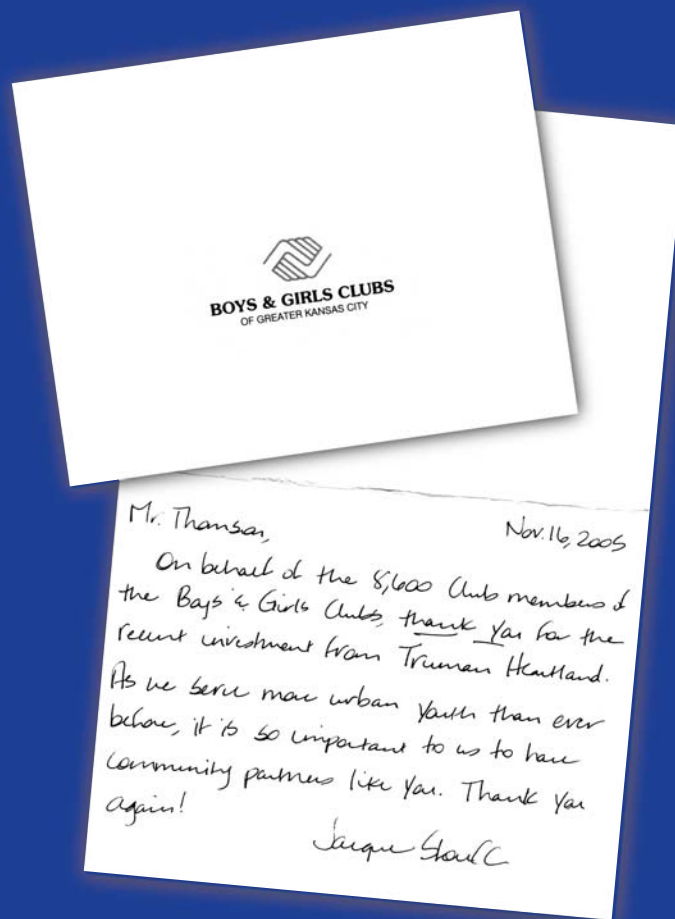 BOYS & GIRLS CLUBS
OF GREATER KANSAS CITY
Mr. Thomson,
Nov. 16, 2005
On behalf of the 8,600 Club members of
the Boys & Girls Clubs, thank you for the
recent investment from Truman Heartland.
As we serve more urban youth than ever
before, it is so important to us to have
community partners like you. Thank you
again!
Jacque